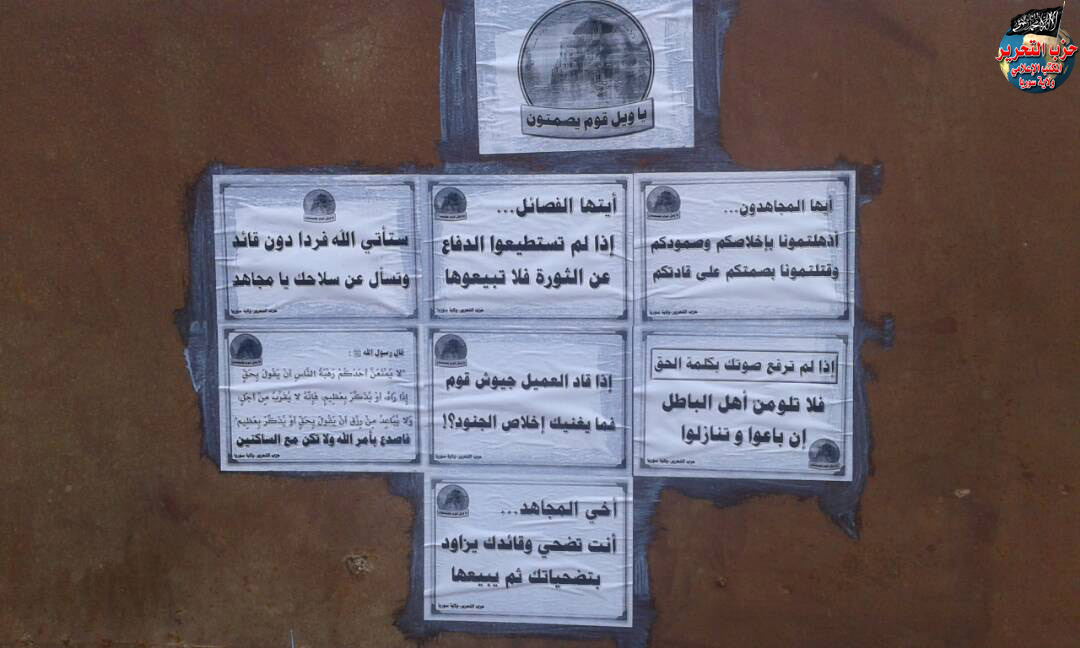 حزب التحرير
المكتب الإعلامي
ولاية سوريا
يا ويل قوم يصمتون
أيها المجاهدون...
أذهلتمونا بإخلاصكم وصمودكم
وقتلتمونا بصمتكم على قادتكم
حزب التحرير-ولاية سوريا
أيتها الفصائل...
إذا لم تستطيعوا الدفاع
عن الثورة فلا تبيعوها
حزب التحرير-ولاية سوريا
ستأتي الله فردا دون قائد
وتسأل عن سلاحك يا مجاهد
حزب التحرير-ولاية سوريا
إذا لم ترفع صوتك بكلمة الحق
فلا تلومن أهل الباطل
إن باعوا و تنازلوا
حزب التحرير-ولاية سوريا
إذا قاد العميل جيوش قوم
فما يغنيك إخلاص الجنود؟!
حزب التحرير-ولاية سوريا
قال رسول الله ﷺ :
"لا يمنعن أحدكم رهبة الناس أن يقول بحق
إذا رآه، أو يذكر بعظيم، فإنه لا يقرب من أجل،
ولا يباعد من رزق أن يقول بحق أو يذكر بعظيم"
فاصدع بأمر الله ولا تكن مع الساكتين
حزب التحرير-ولاية سوريا
أخي المجاهد...
أنت تضحي وقائدك يزاود
بتضحياتك ثم يبيعها
حزب التحرير-ولاية سوريا